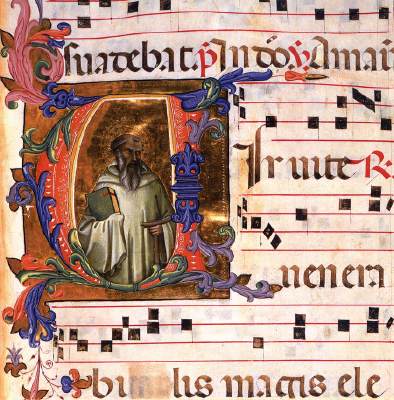 suadebat p In do V
Vir uite R
uenera
bilis magis ele